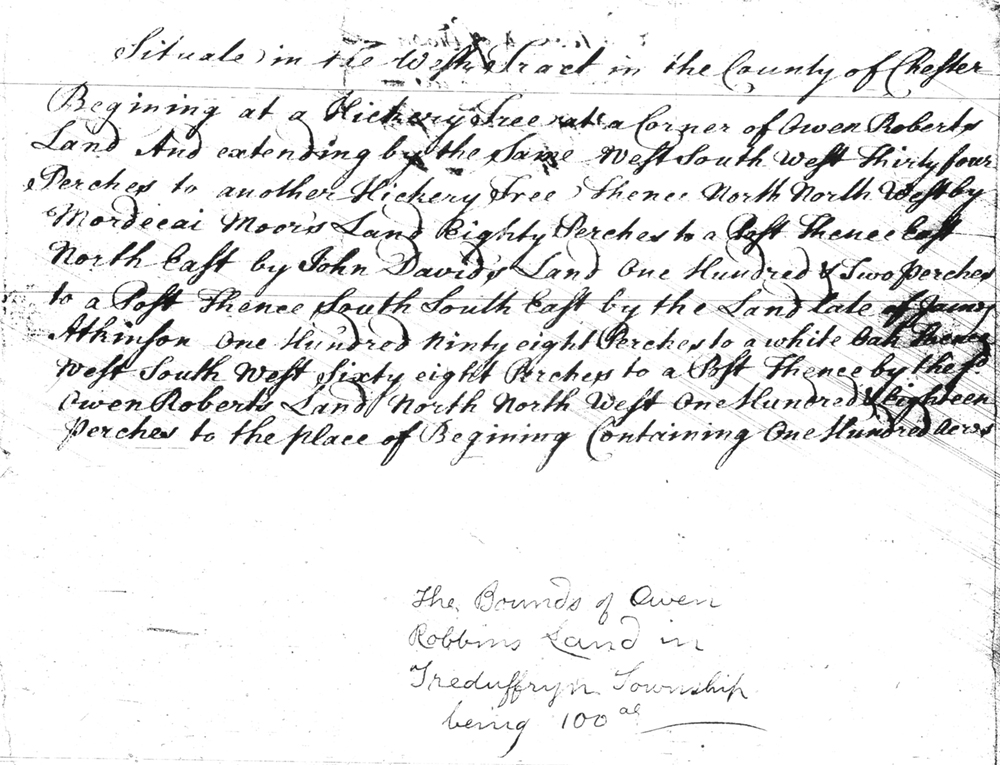 Situate in the Welsh Tract in the County of Chester
Begining at a Hickery Tree at a Corner of Owen Roberts
Land And extending by the Same West South West Thirty four
Perches to another Hickery Tree Thence North North West by
Mordecai Moor's Land Eighty Perches to a Post Thence East
North East by John David's Land One Hundred & Two Perches
to a Post Thence South South East by the Land late of James
Atkinson One Hundred Ninty eight Perches to a white Oak Thence
West South West Sixty eight Perches to a Post Thence by the sd
Owen Roberts Land North North West One Hundred & Eighteen
Perches to the place of Begining Containing One Hundred Acres
The Bounds of Owen
Robbins Land in
Treduffryn Township
being 100 as